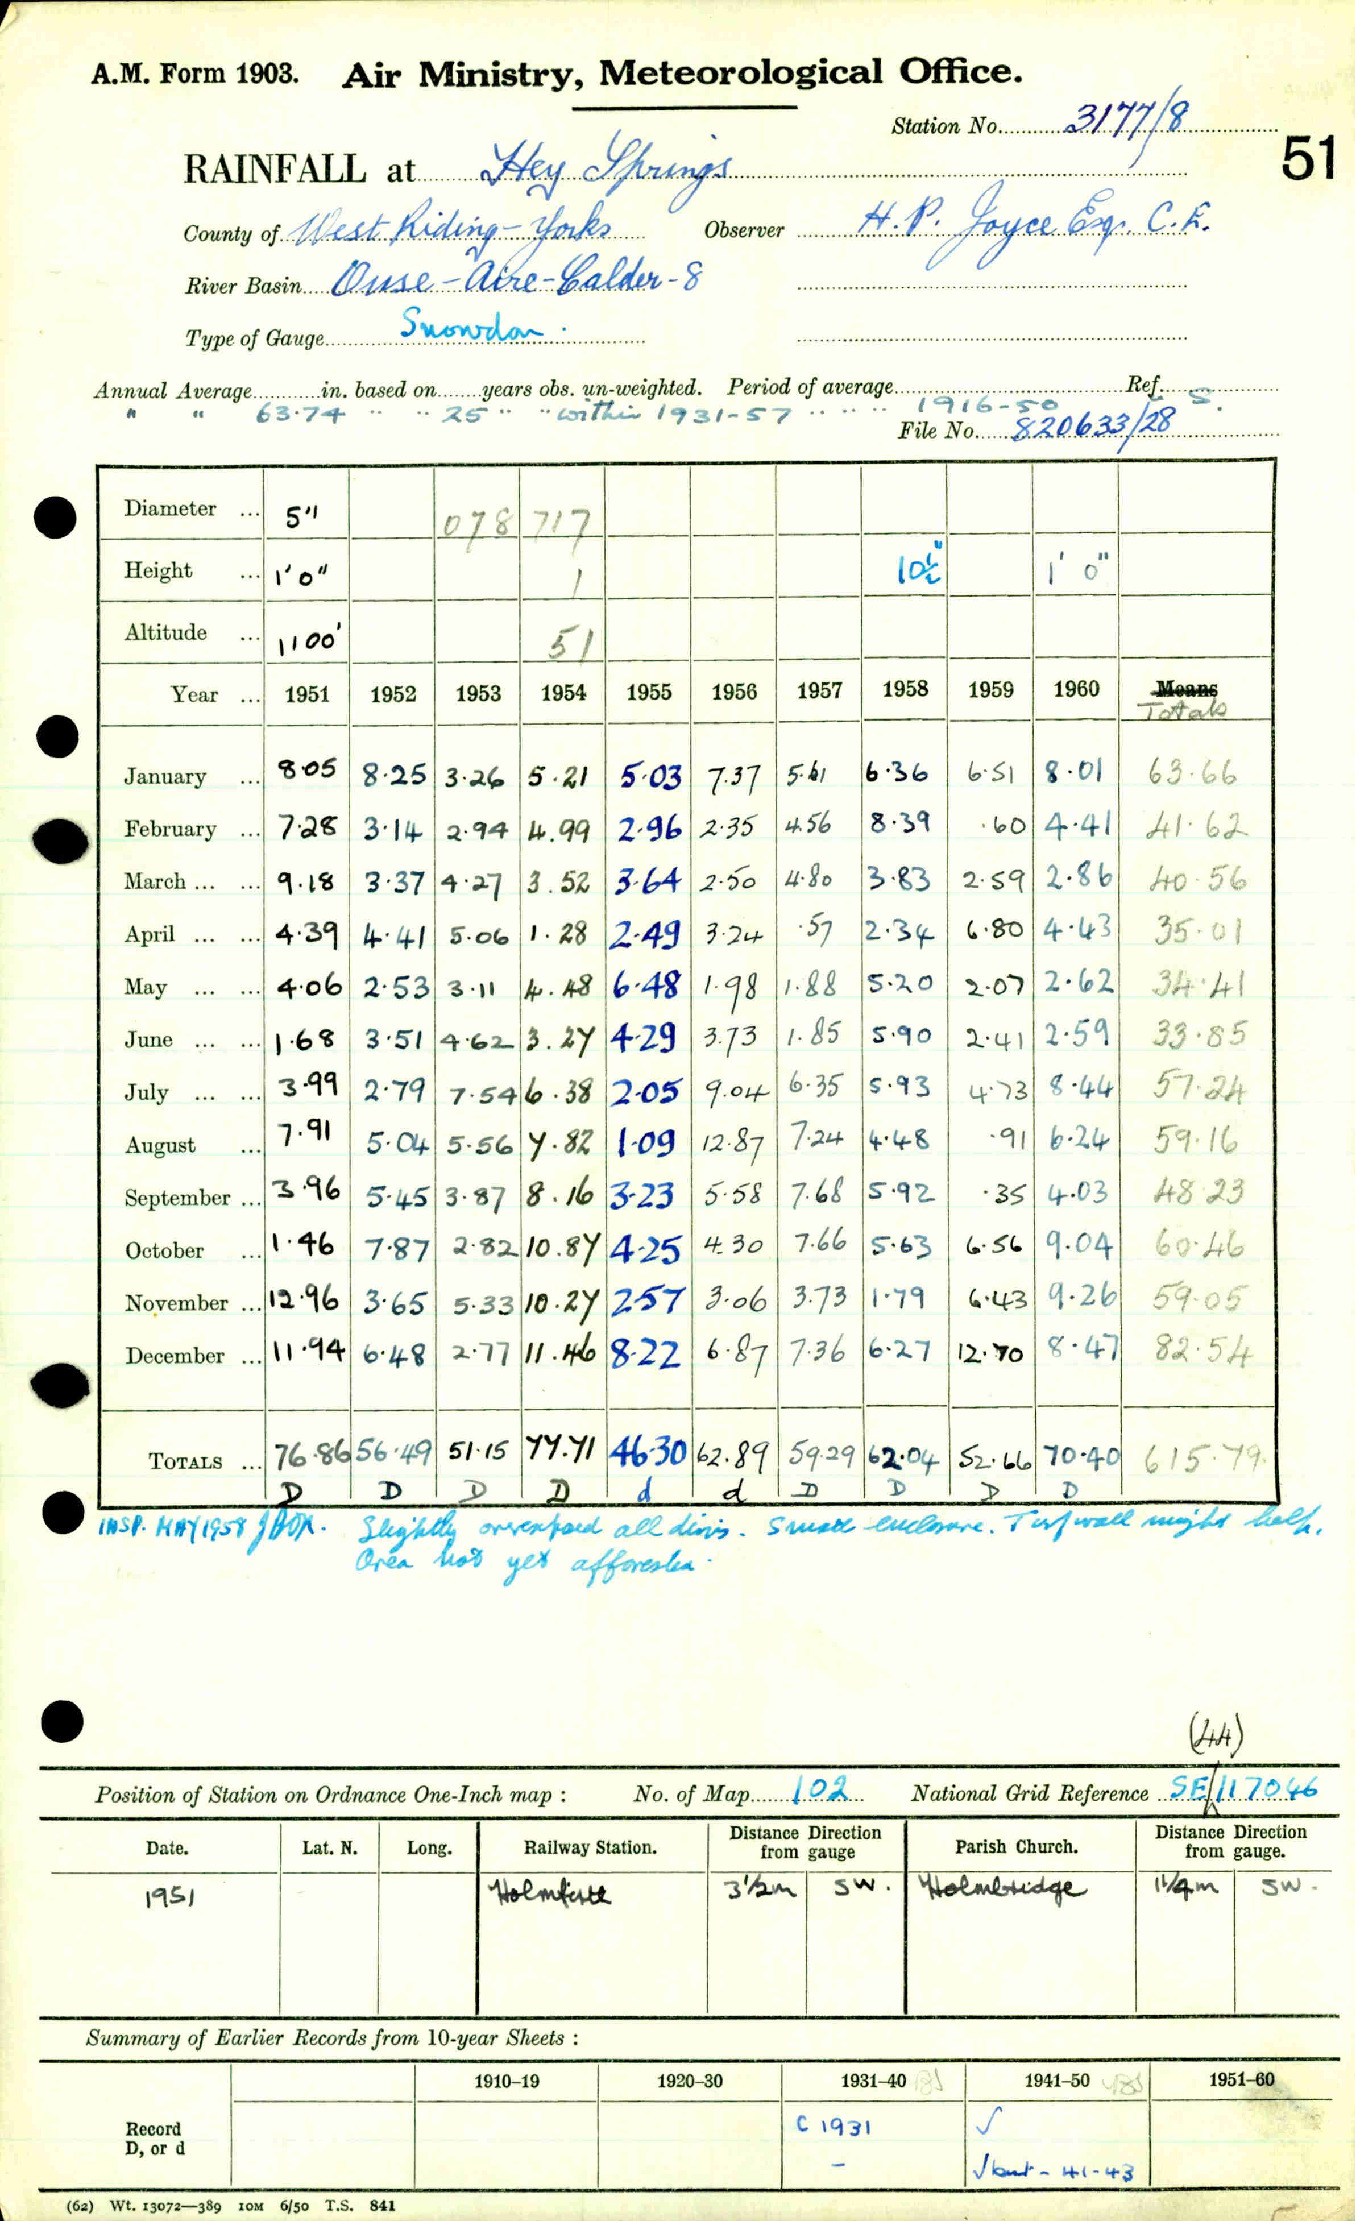 A.M. Form 1903. Air Ministry, Meteorological Office.
Station No. 3177/8
51
RAINFALL at Hey Springs
County of West Riding - Yorks Observer H. P. Joyce Esq. C.E.
River Basin Ouse - Aire - Calder - 8
Type of Gauge Snowdon.
Annual Average in. based on years obs. un-weighted. Period of average Ref.
" " 63.74 " " 25 " " within 1931-57 " " " 1916-50 S.
File No. 820633/28
Diameter ... 5" 078 717
Height ... 1'0" 1 10½" 1' 0"
Altitude ... 1100' 51
Year ... 1951 1952 1953 1954 1955 1956 1957 1958 1959 1960 Means
Totals
January ... 8.05 8.25 3.26 5.21 5.03 7.37 5.61 6.36 6.51 8.01 63.66
February ... 7.28 3.14 2.94 4.99 2.96 2.35 4.56 8.39 .60 4.41 41.62
March ... ... 9.18 3.37 4.27 3.52 3.64 2.50 4.80 3.83 2.59 2.86 40.56
April ... ... 4.39 4.41 5.06 1.28 2.49 3.24 .57 2.34 6.80 4.43 35.01
May ... ... 4.06 2.53 3.11 4.48 6.48 1.98 1.88 5.20 2.07 2.62 34.41
June ... ... 1.68 3.51 4.62 3.27 4.29 3.73 1.85 5.90 2.41 2.59 33.85
July ... ... 3.99 2.79 7.54 6.38 2.05 9.04 6.35 5.93 4.73 8.44 57.24
August ... 7.91 5.04 5.56 7.82 1.09 12.87 7.24 4.48 .91 6.24 59.16
September ... 3.96 5.45 3.87 8.16 3.23 5.58 7.68 5.92 .35 4.03 48.23
October ... 1.46 7.87 2.82 10.87 4.25 4.30 7.66 5.63 6.56 9.04 60.46
November ... 12.96 3.65 5.33 10.27 2.57 3.06 3.73 1.79 6.43 9.26 59.05
December ... 11.94 6.48 2.77 11.46 8.22 6.87 7.36 6.27 12.70 8.47 82.54
TOTALS ... 76.86 56.49 51.15 77.71 46.30 62.89 59.29 62.04 52.66 70.40 615.79
D D D D d d D D D D
INSP. MAY 1958 Slightly overexposed all dirns. Small enclosure. Turf wall might help.
Area not yet afforested.
(44)
Position of Station on Ordnance One-Inch map : No. of Map 102 National Grid Reference SE/117046
Date. Lat. N. Long. Railway Station. Distance Direction from gauge Parish Church. Distance Direction from gauge.
1951 Holmfirth 3½m SW. Holmbridge 1¼m SW.
Summary of Earlier Records from 10-year Sheets :
1910–19 1920–30 1931–40 1941–50 1951–60
Record D, or d
C 1931 √
– √ but - 41-43
(62) Wt. 13072—389 10M 6/50 T.S. 841